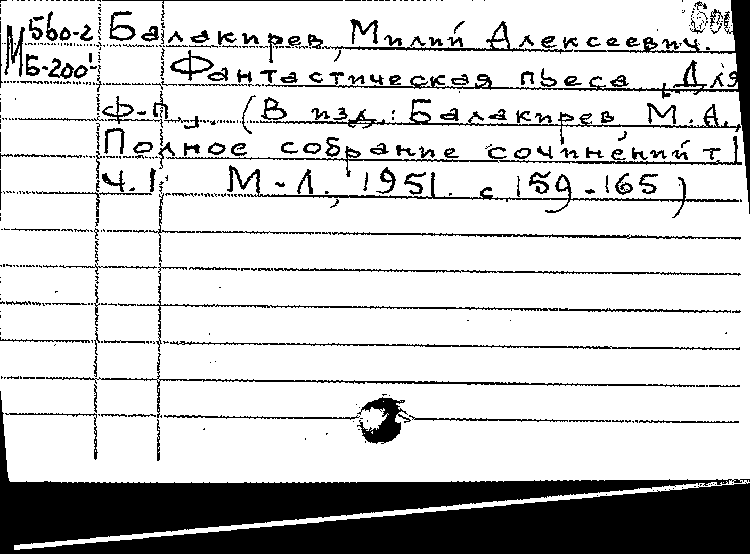 М 560-2
Б-200
Балакирев, Милий Алексеевич.
Фантастическая пьеса [Для
ф-п.]. (В изд.: Балакирев, М.А.,
Полное собрание сочинений т 1
ч.1. М-Л., 1951. с 159-165)